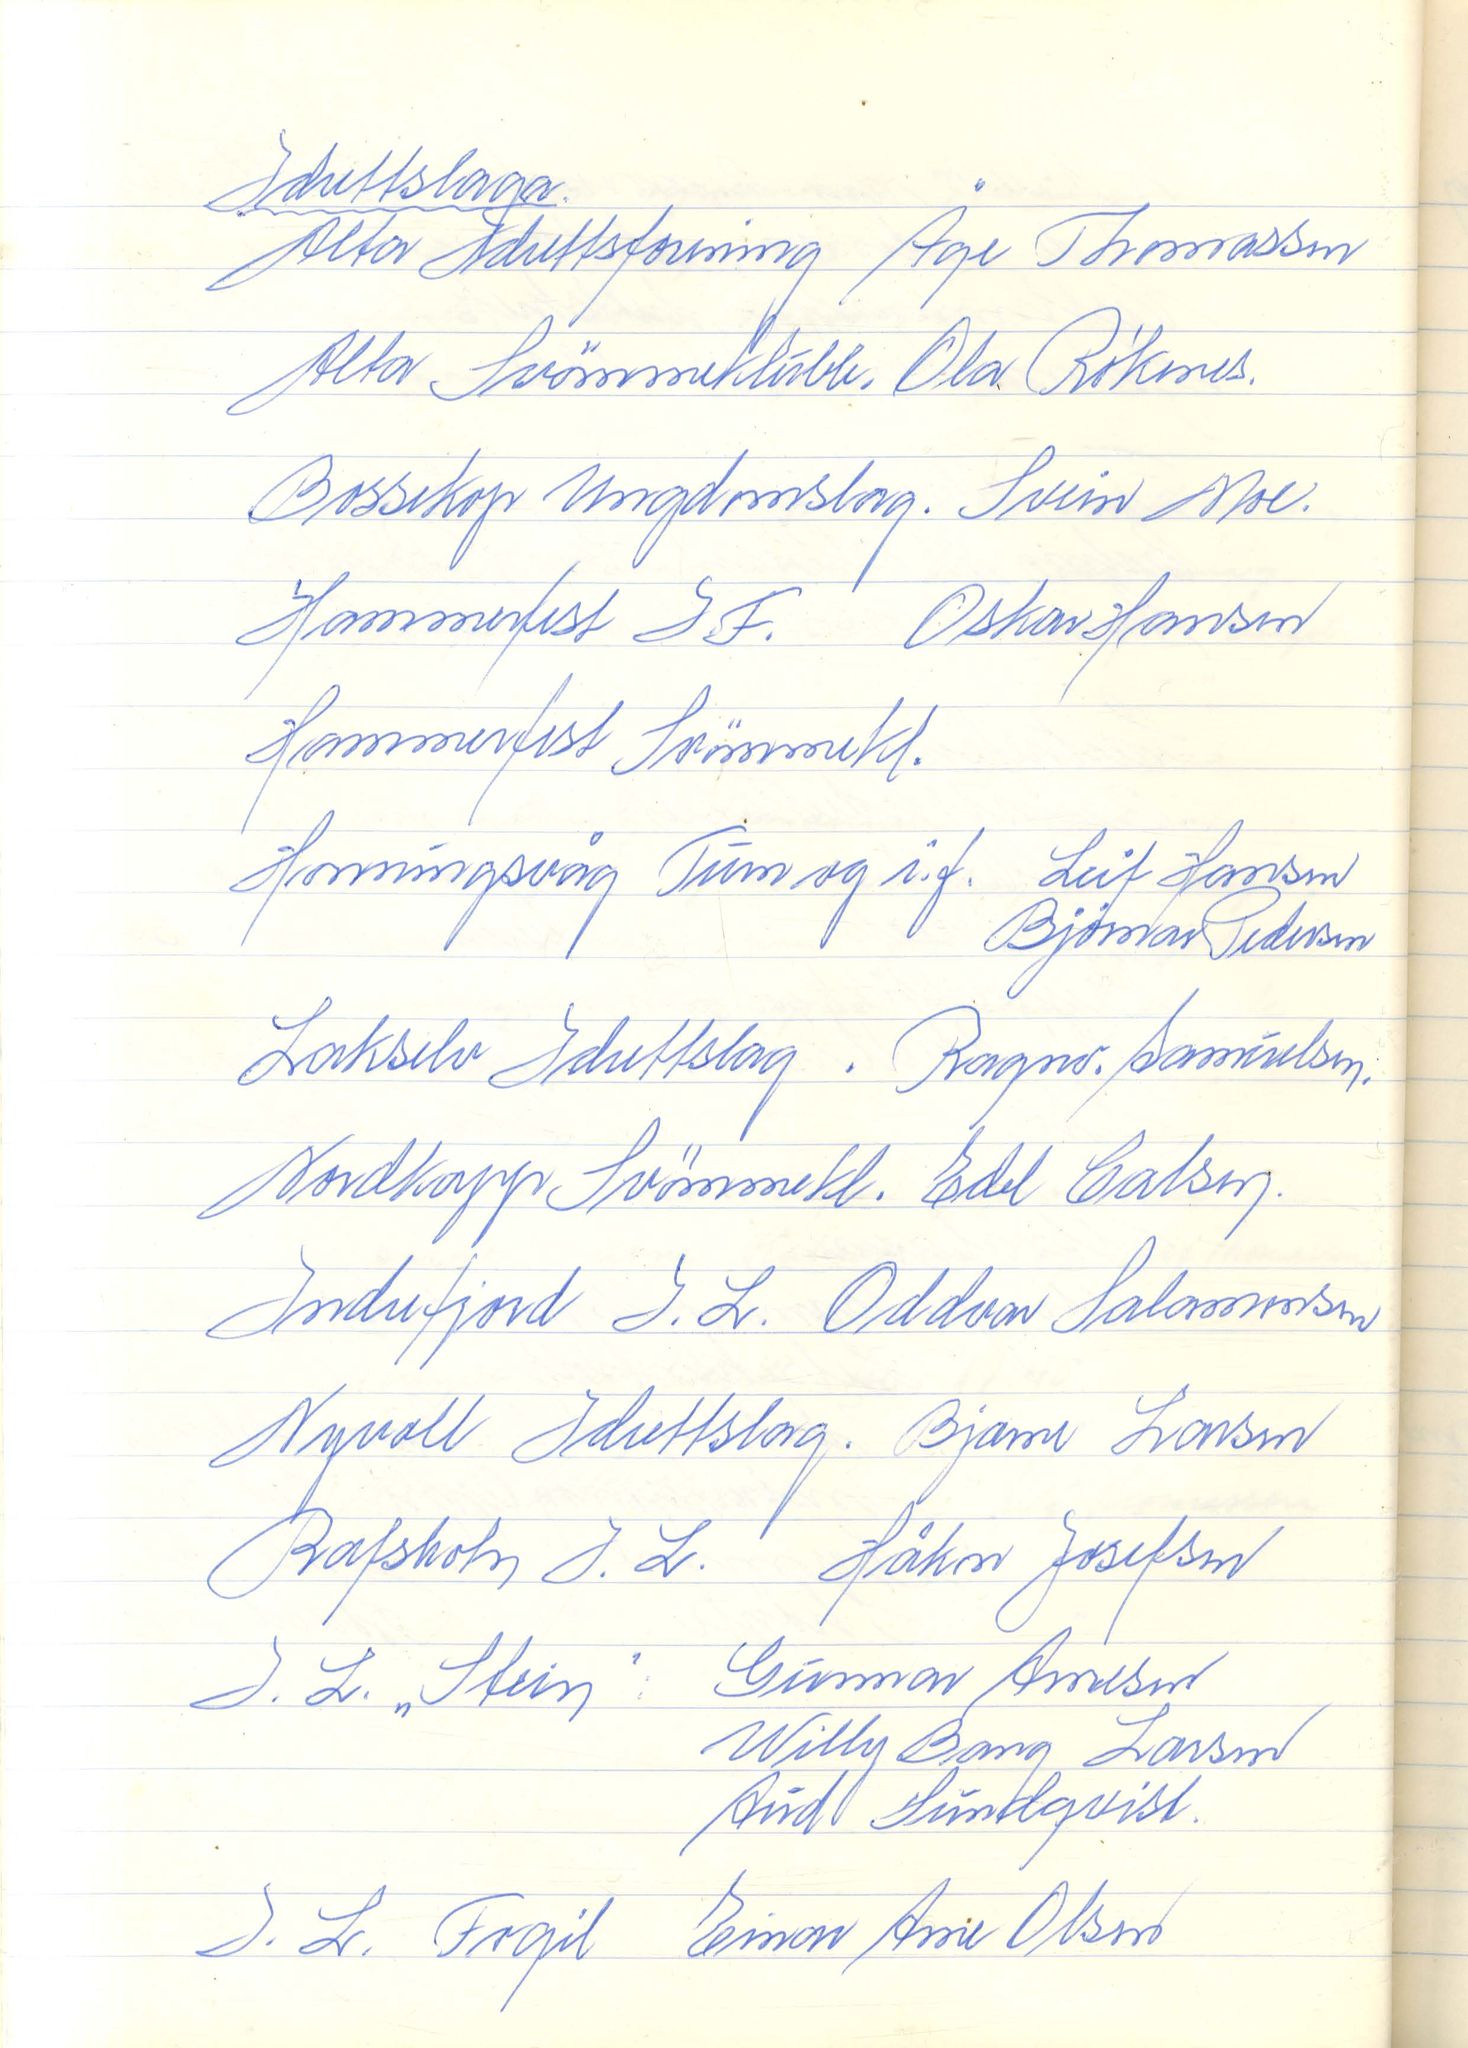 Idrettslaga.
Alta Idrettsforening Åge Thomassen
Alta Svömmeklubb. Ola Rökenes.
Bossekop Ungdomslag. Svein Moe.
Hammerfest I.F. Oskar Hansen
Hammerfest Svömmekl.
Honningsvåg Turn og i.f. Leif Hansen
Björnar Pedersen
Lakselv Idrettslag. Ragnv. Samuelsen.
Nordkapp Svömmekl. Edel Calsen.
Indrefjord I.L. Oddvar Salamonsen
Nyvoll Idrettslag. Bjarne Larsen
Rafsholn I.L. Håkon Josefsen
I.L. „Stein": Gunnar Arnesen
Willy Bang Larsen
Aud Sundqvist.
I.L. Frgil Einar Arne Olsen